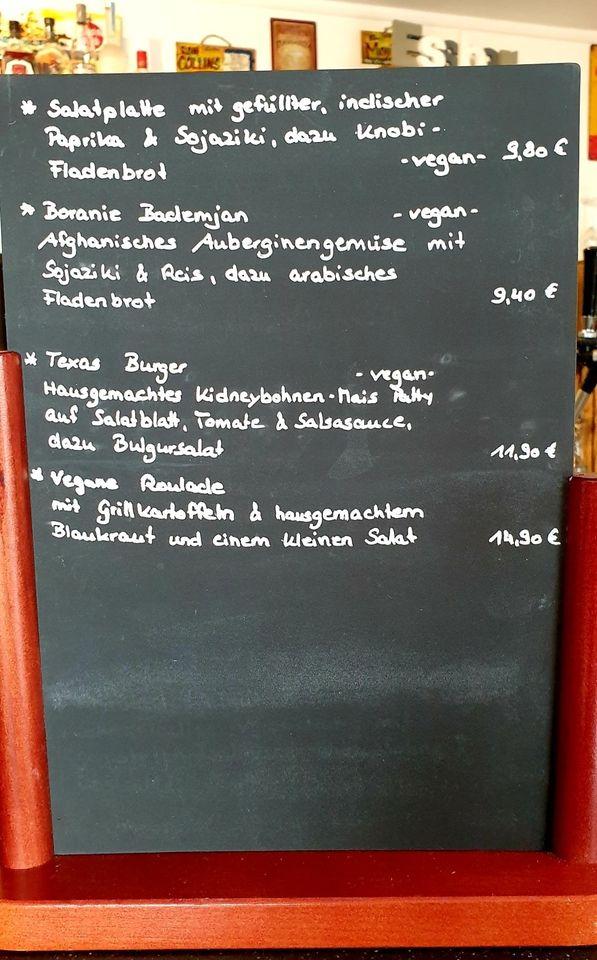 COLLINS
* Salatplatte mit gefüllter, indischer
Paprika & Sojaziki, dazu Knobi-
Fladenbrot -vegan- 9,80 €
* Boranie Bademjan -vegan-
Afghanisches Auberginengemüse mit
Sojaziki & Reis, dazu arabisches
Fladenbrot 9,40 €
* Texas Burger -vegan-
Hausgemachtes Kidneybohnen-Mais Patty
auf Salatblatt, Tomate & Salsasauce,
dazu Bulgursalat 11,90 €
* Vegane Roulade
mit Grillkartoffeln & hausgemachtem
Blaukraut und einem kleinen Salat 14,90 €